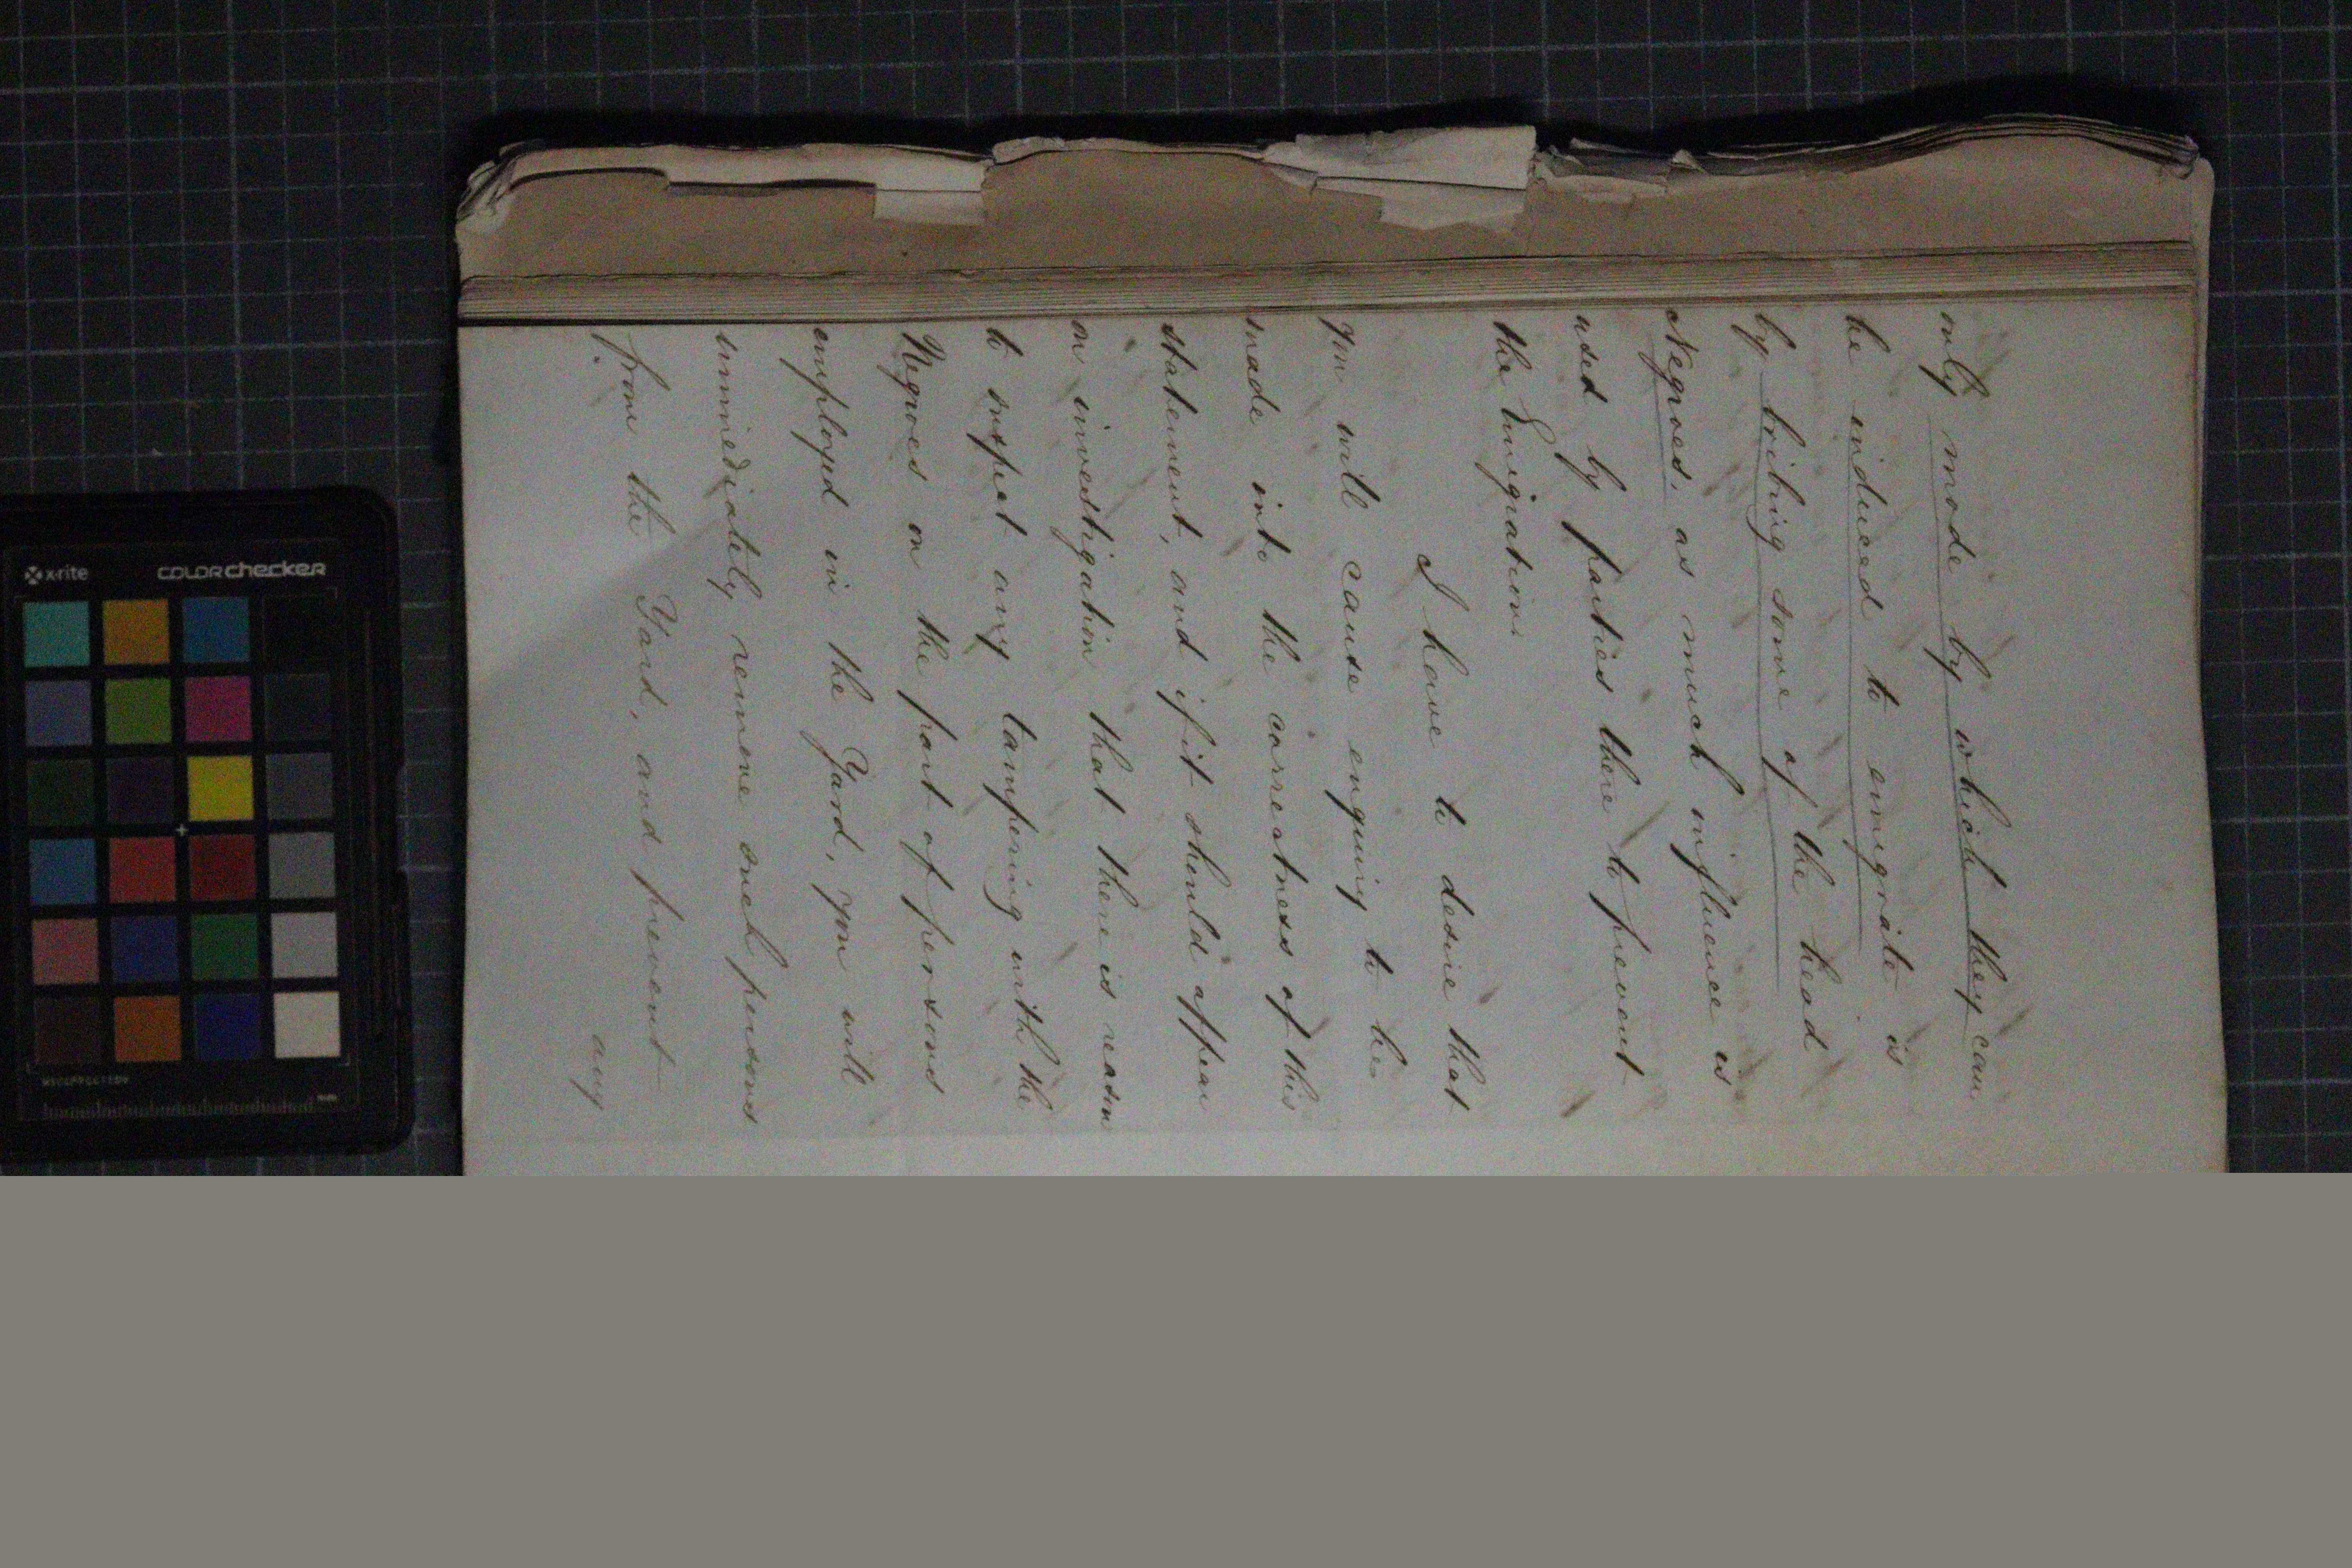 only mode by which they can
be induced to emigrate is
by bribing some of the head
Negroes, as much influence is
used by parties there to prevent
the Emigration.
I have to desire that
you will cause enquiry to be
made into the correctness of this
statement, and if it should appear
on investigation that there is reason
to suspect any tampering with the
Negroes on the part of persons
employed in the Yard, you will
immediately remove such persons
from the Yard, and prevent
any
x-rite COLORchecker